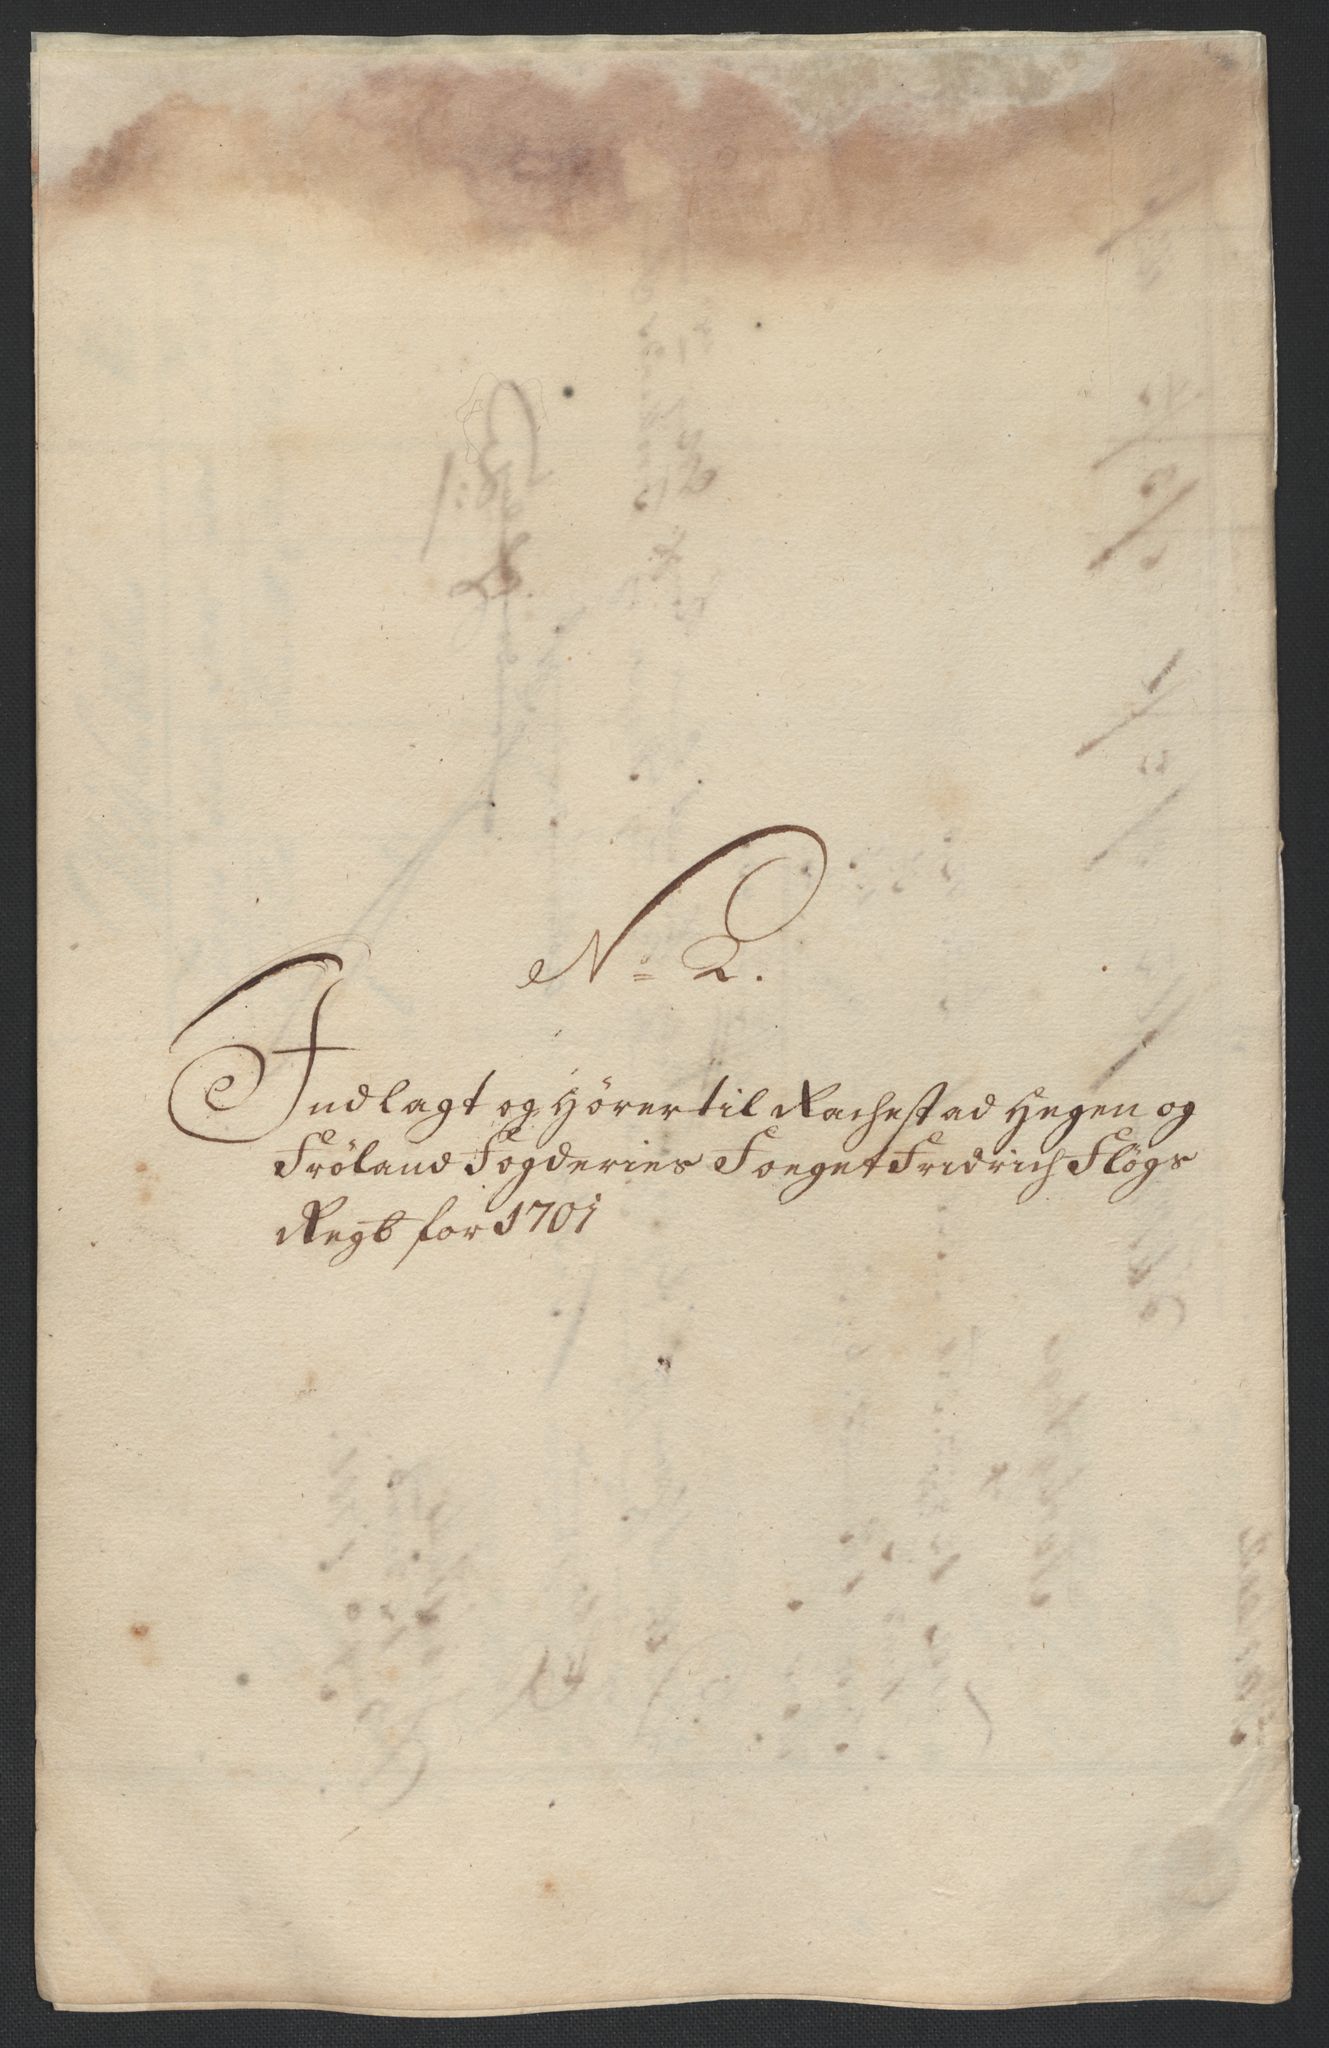 No 2.
Indlagt og hører til Rachestad Hegen og
Fröland Fogderies Foeget Fridrich Flögs
Regb for 1701